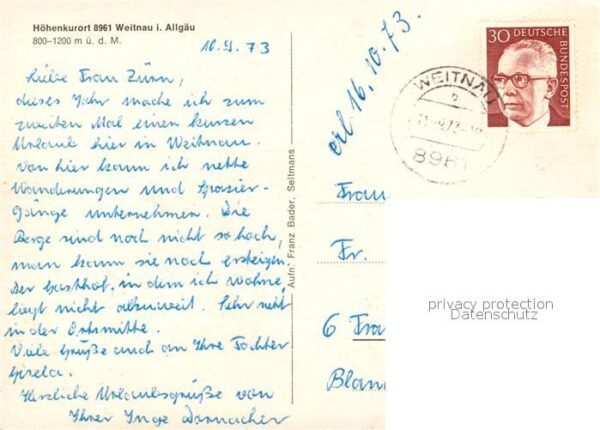 Höhenkurort 8961 Weitnau i. Allgäu
800-1200 m ü. d. M.
10.9.73
Liebe Frau Zürn,
dieses Jahr mache ich zum
zweiten Mal einen kurzen
Urlaub hier in Weitnau.
Von hier kann ich nette
Wanderungen und Spazier-
gänge unternehmen. Die
Berge sind noch nicht so hoch,
man kann sie noch ersteigen.
Der Gasthof, in dem ich wohne,
liegt nicht allzuweit. Sehr nett
in der Ortsmitte.
Viele Grüße auch an Ihre Tochter
Gisela.
Herzliche Urlaubsgrüße von
Ihrer Inge
Aufn. Franz Bader, Seltmans
erl. 16.10.73.
30 DEUTSCHE
BUNDESPOST
WEITNAU
b
8961
Frau
Fr.
6 Fra
Blan
privacy protection
Datenschutz